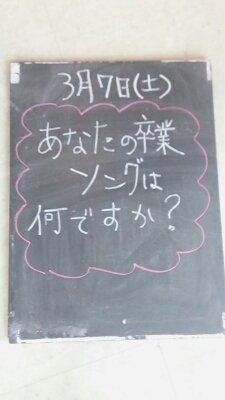 3月7日(土)
あなたの卒業
ソングは
何ですか?